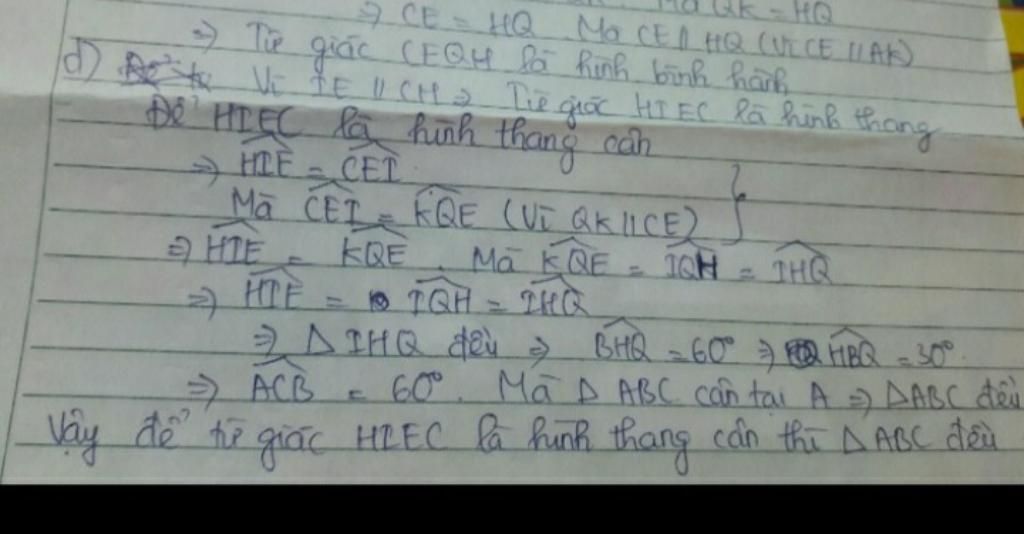 Mà QK = HQ
⇒ CE = HQ. Mà CE // HQ (Vì CE // AK)
⇒ Tứ giác CEQH là hình bình hành
d) Vì IE // CH ⇒ Tứ giác HIEC là hình thang
Để HIEC là hình thang cân
⇒ HIE = CEI
Mà CEI = KQE (Vì QK // CE) }
⇒ HIE = KQE. Mà KQE = IQH = IHQ
⇒ HIE = IQH = IHQ
⇒ Δ IHQ đều ⇒ BHQ = 60° ⇒ HBQ = 30°
⇒ ACB = 60°. Mà Δ ABC cân tại A ⇒ ΔABC đều
Vậy để tứ giác HIEC là hình thang cân thì Δ ABC đều